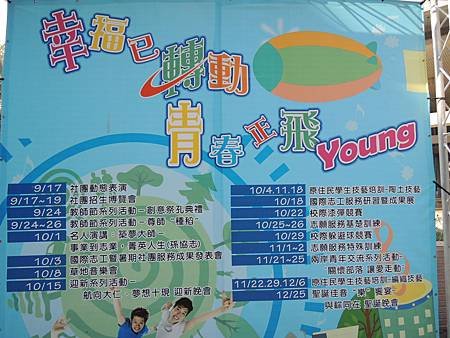 幸福已轉動
青春正飛Young
9/17 社團動態表演
9/17~19 社團招生博覽會
9/24 教師節系列活動－創意祭孔典禮
9/24~26 教師節系列活動－尊師一種稻
10/1 名人演講：築夢大師－
事業到志業‧菁英人生(孫協志)
10/3 國際志工暨暑期社團服務成果發表會
10/8 草地音樂會
10/15 迎新系列活動－
航向大仁‧夢想十現 迎新晚會
10/4.11.18 原住民學生技藝培訓-陶土技藝
10/18 國際志工服務研習暨成果展
10/22 校際漆彈競賽
10/25~26 志願服務基礎訓練
10/29 校際躲避球競賽
11/1~2 志願服務特殊訓練
11/21~25 兩岸青年交流系列活動-
關懷部落 讓愛走動
11/22.29.12/6 原住民學生技藝培訓-編織技藝
12/25 聖誕佳音"樂"饗宴
與綜同在 聖誕晚會